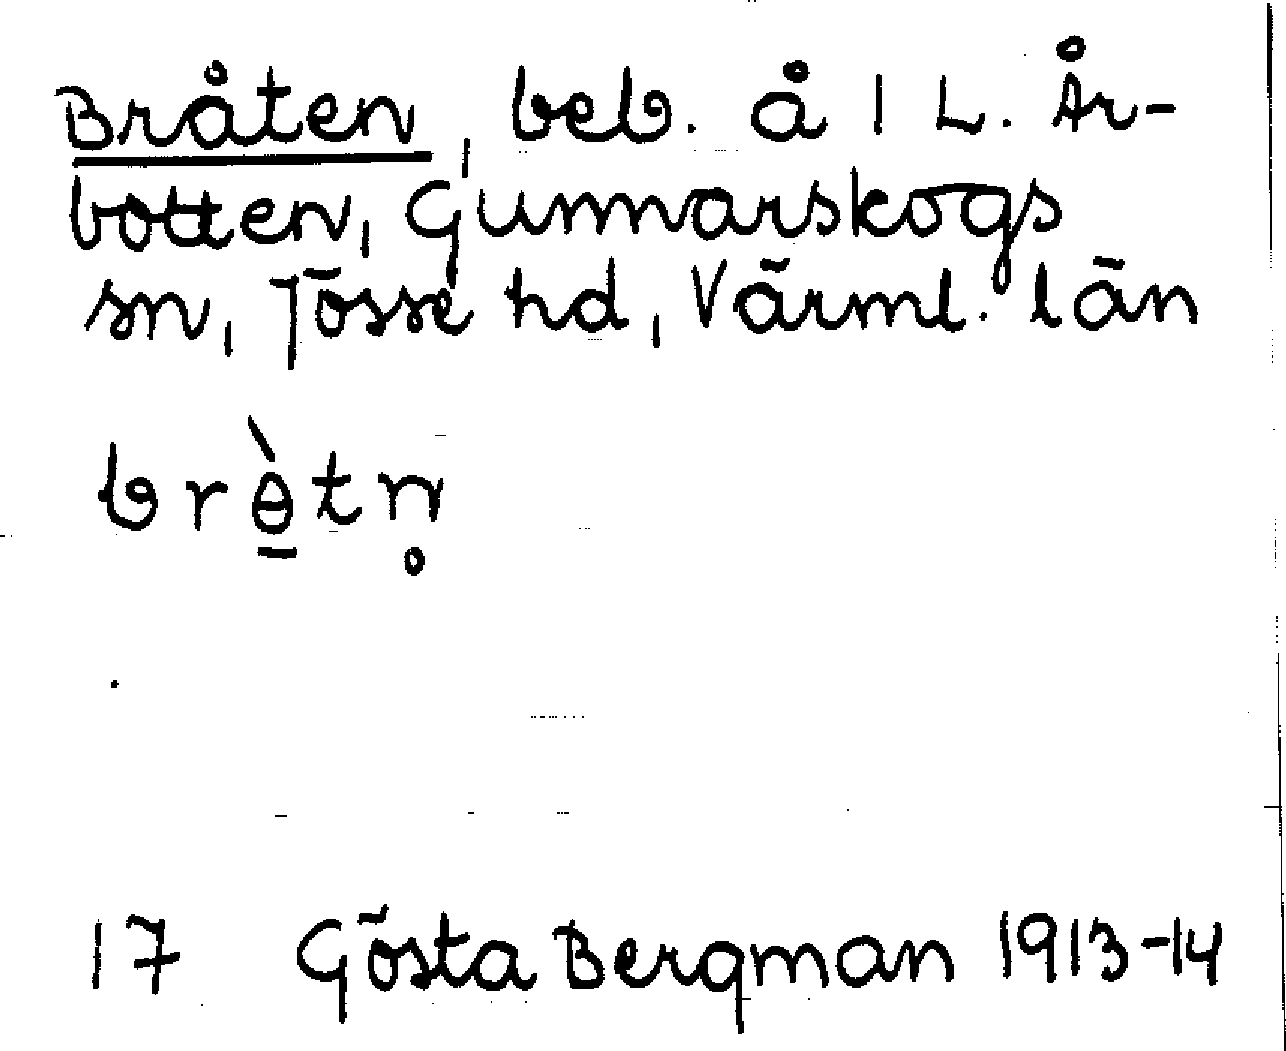 Bråten, beb. å 1 L. År-
botten, Gunnarskogs
sn, Jösse hd, Värml. län
brɵ̱̀tn̥
17 Gösta Bergman 1913-14